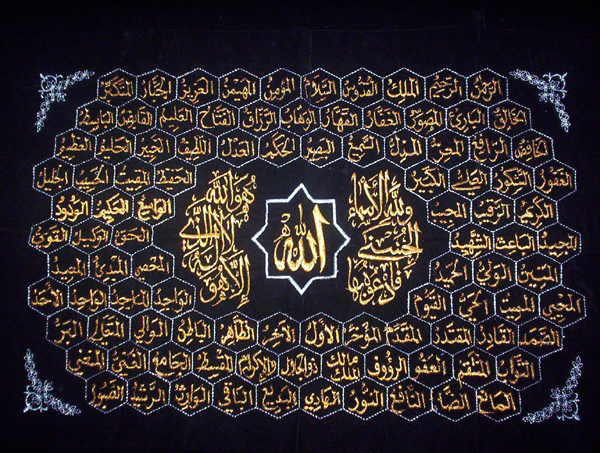 الرحمن الرحيم الملك القدوس السلام المؤمن المهيمن العزيز الجبار المتكبر
الخالق البارئ المصور الغفار القهار الوهاب الرزاق الفتاح العليم القابض الباسط
الخافض الرافع المعز المذل السميع البصير الحكم العدل اللطيف الخبير الحليم العظيم
الغفور الشكور العلي الكبير الحفيظ المقيت الحسيب الجليل
الكريم الرقيب المجيب الواسع الحكيم الودود
المجيد الباعث الشهيد الحق الوكيل القوي
المتين الولي الحميد المحصي المبدئ المعيد
المحيي المميت الحي القيوم الواجد الماجد الواحد الأحد
ولله الأسماء الحسنى فادعوه بها
الله
هو الله الذي لا إله إلا هو
الصمد القادر المقتدر المقدم المؤخر الأول الآخر الظاهر الباطن الوالي المتعالي البر
التواب المنتقم العفو الرؤوف مالك الملك ذو الجلال والإكرام المقسط الجامع الغني المغني
المانع الضار النافع النور الهادي البديع الباقي الوارث الرشيد الصبور